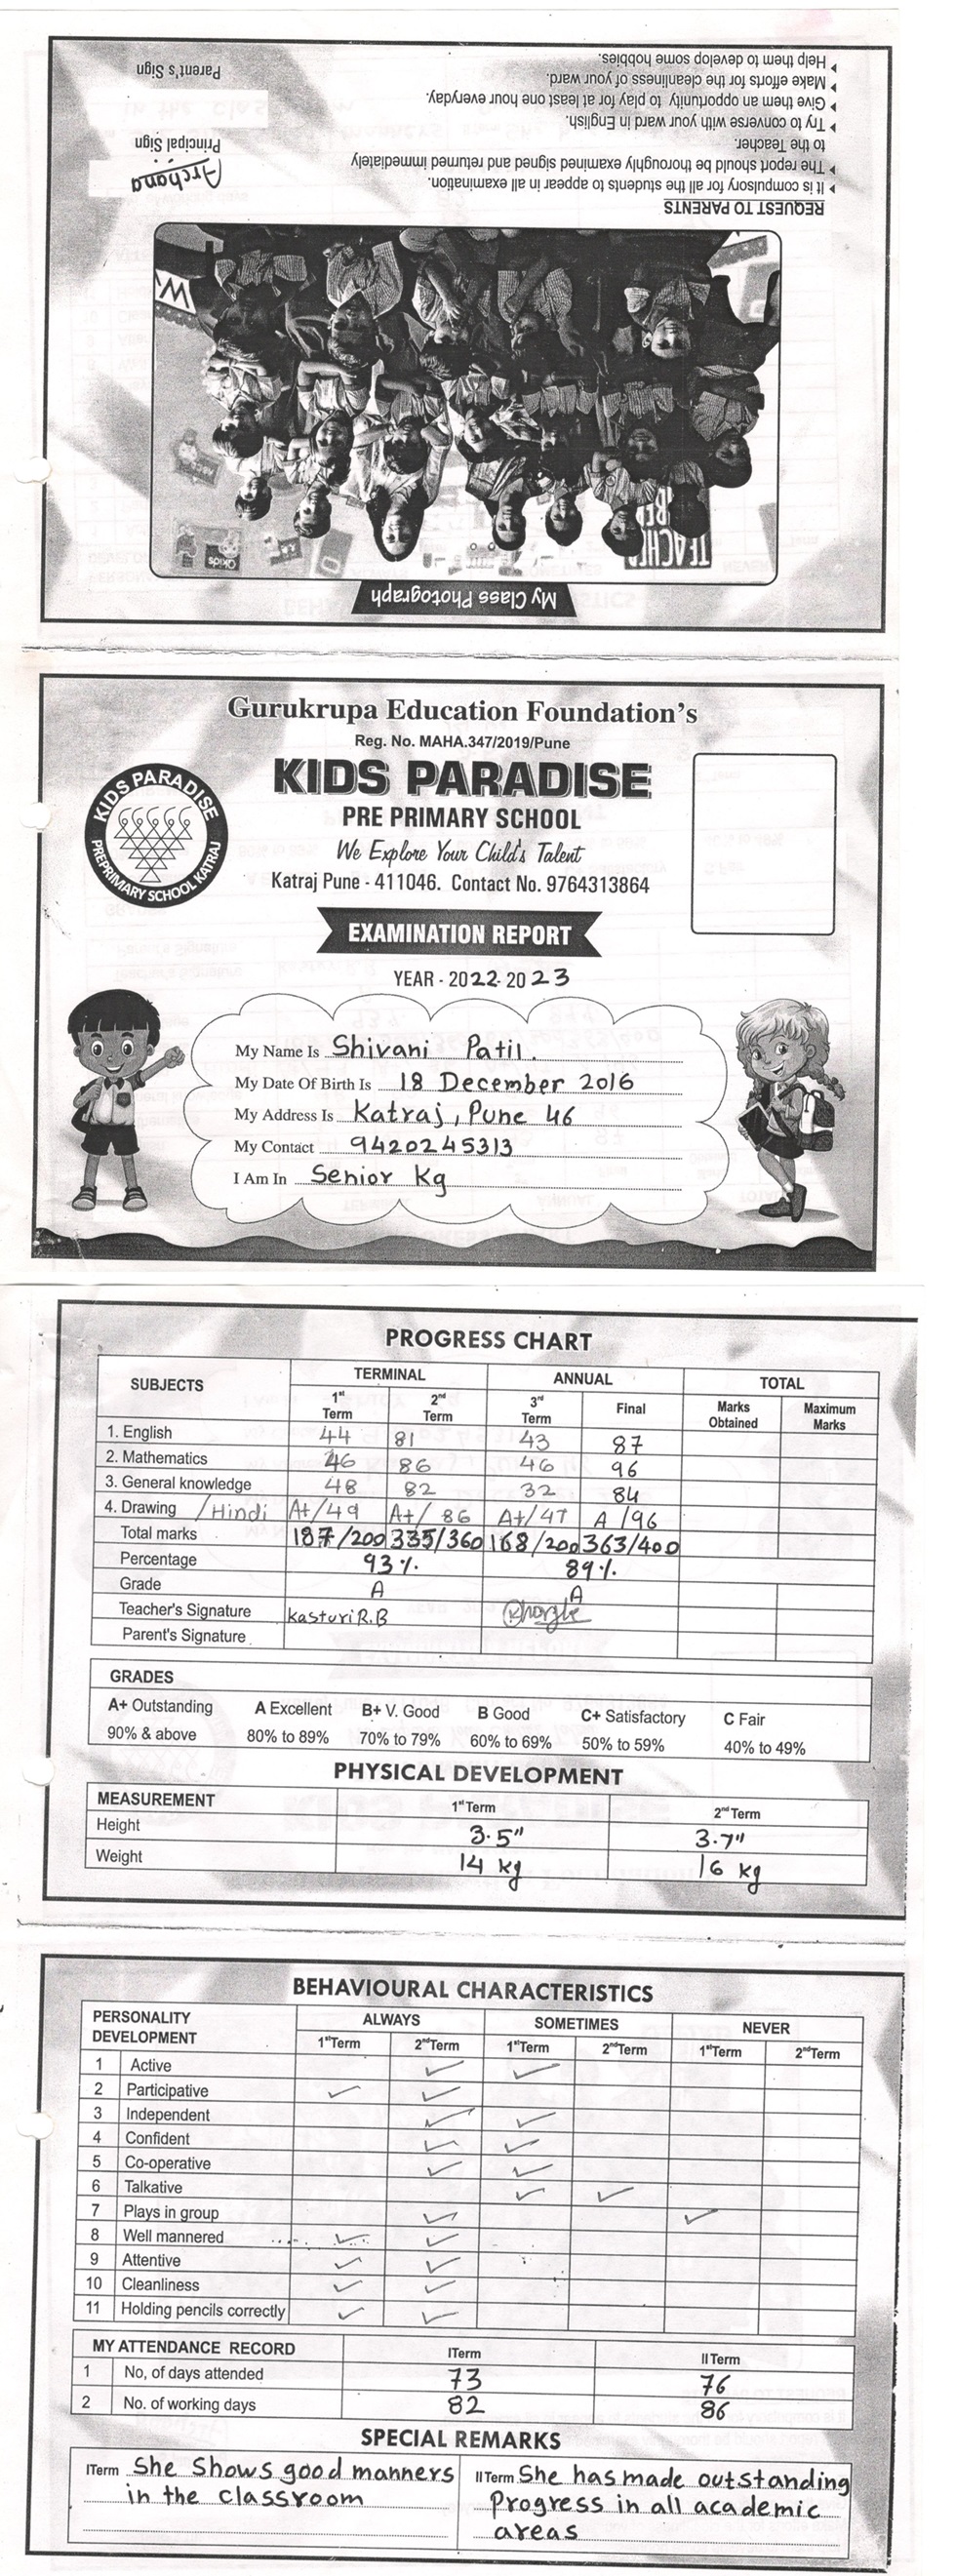 My Class Photograph
TEACH
BER
W
Okids
REQUEST TO PARENTS
It is compulsory for all the students to appear in all examination.
The report should be thoroughly examined signed and returned immediately
to the Teacher.
Try to converse with your ward in English.
Give them an opportunity to play for at least one hour everyday.
Make efforts for the cleanliness of your ward.
Help them to develop some hobbies.
Archana
Principal Sign
Parent's Sign
Gurukrupa Education Foundation's
Reg. No. MAHA.347/2019/Pune
KIDS PARADISE
PRE PRIMARY SCHOOL
We Explore Your Child's Talent
Katraj Pune - 411046. Contact No. 9764313864
KIDS PARADISE
PREPRIMARY SCHOOL KATRAJ
EXAMINATION REPORT
YEAR - 2022-2023
My Name Is Shivani Patil.
My Date Of Birth Is 18 December 2016
My Address Is Katraj, Pune 46
My Contact 9420245313
I Am In Senior Kg
PROGRESS CHART
SUBJECTS TERMINAL ANNUAL TOTAL
1st Term 2nd Term 3rd Term Final Marks Obtained Maximum Marks
1. English 44 81 43 87
2. Mathematics 46 86 46 96
3. General knowledge 48 82 32 84
4. Drawing / Hindi A+/49 A+/ 86 A+/47 A /96
Total marks 187/200 335/360 168/200 363/400
Percentage 93% 89%
Grade A A
Teacher's Signature Kasturi R.B
Parent's Signature
GRADES
A+ Outstanding A Excellent B+ V. Good B Good C+ Satisfactory C Fair
90% & above 80% to 89% 70% to 79% 60% to 69% 50% to 59% 40% to 49%
PHYSICAL DEVELOPMENT
MEASUREMENT 1st Term 2nd Term
Height 3.5" 3.7"
Weight 14 kg 16 kg
BEHAVIOURAL CHARACTERISTICS
PERSONALITY DEVELOPMENT ALWAYS SOMETIMES NEVER
1st Term 2nd Term 1st Term 2nd Term 1st Term 2nd Term
1 Active ✓ ✓
2 Participative ✓ ✓
3 Independent ✓ ✓
4 Confident ✓ ✓
5 Co-operative ✓ ✓
6 Talkative ✓ ✓
7 Plays in group ✓ ✓
8 Well mannered ✓ ✓
9 Attentive ✓ ✓
10 Cleanliness ✓ ✓
11 Holding pencils correctly ✓ ✓
MY ATTENDANCE RECORD I Term II Term
1 No, of days attended 73 76
2 No. of working days 82 86
SPECIAL REMARKS
I Term She Shows good manners
in the classroom
II Term She has made outstanding
Progress in all academic
areas